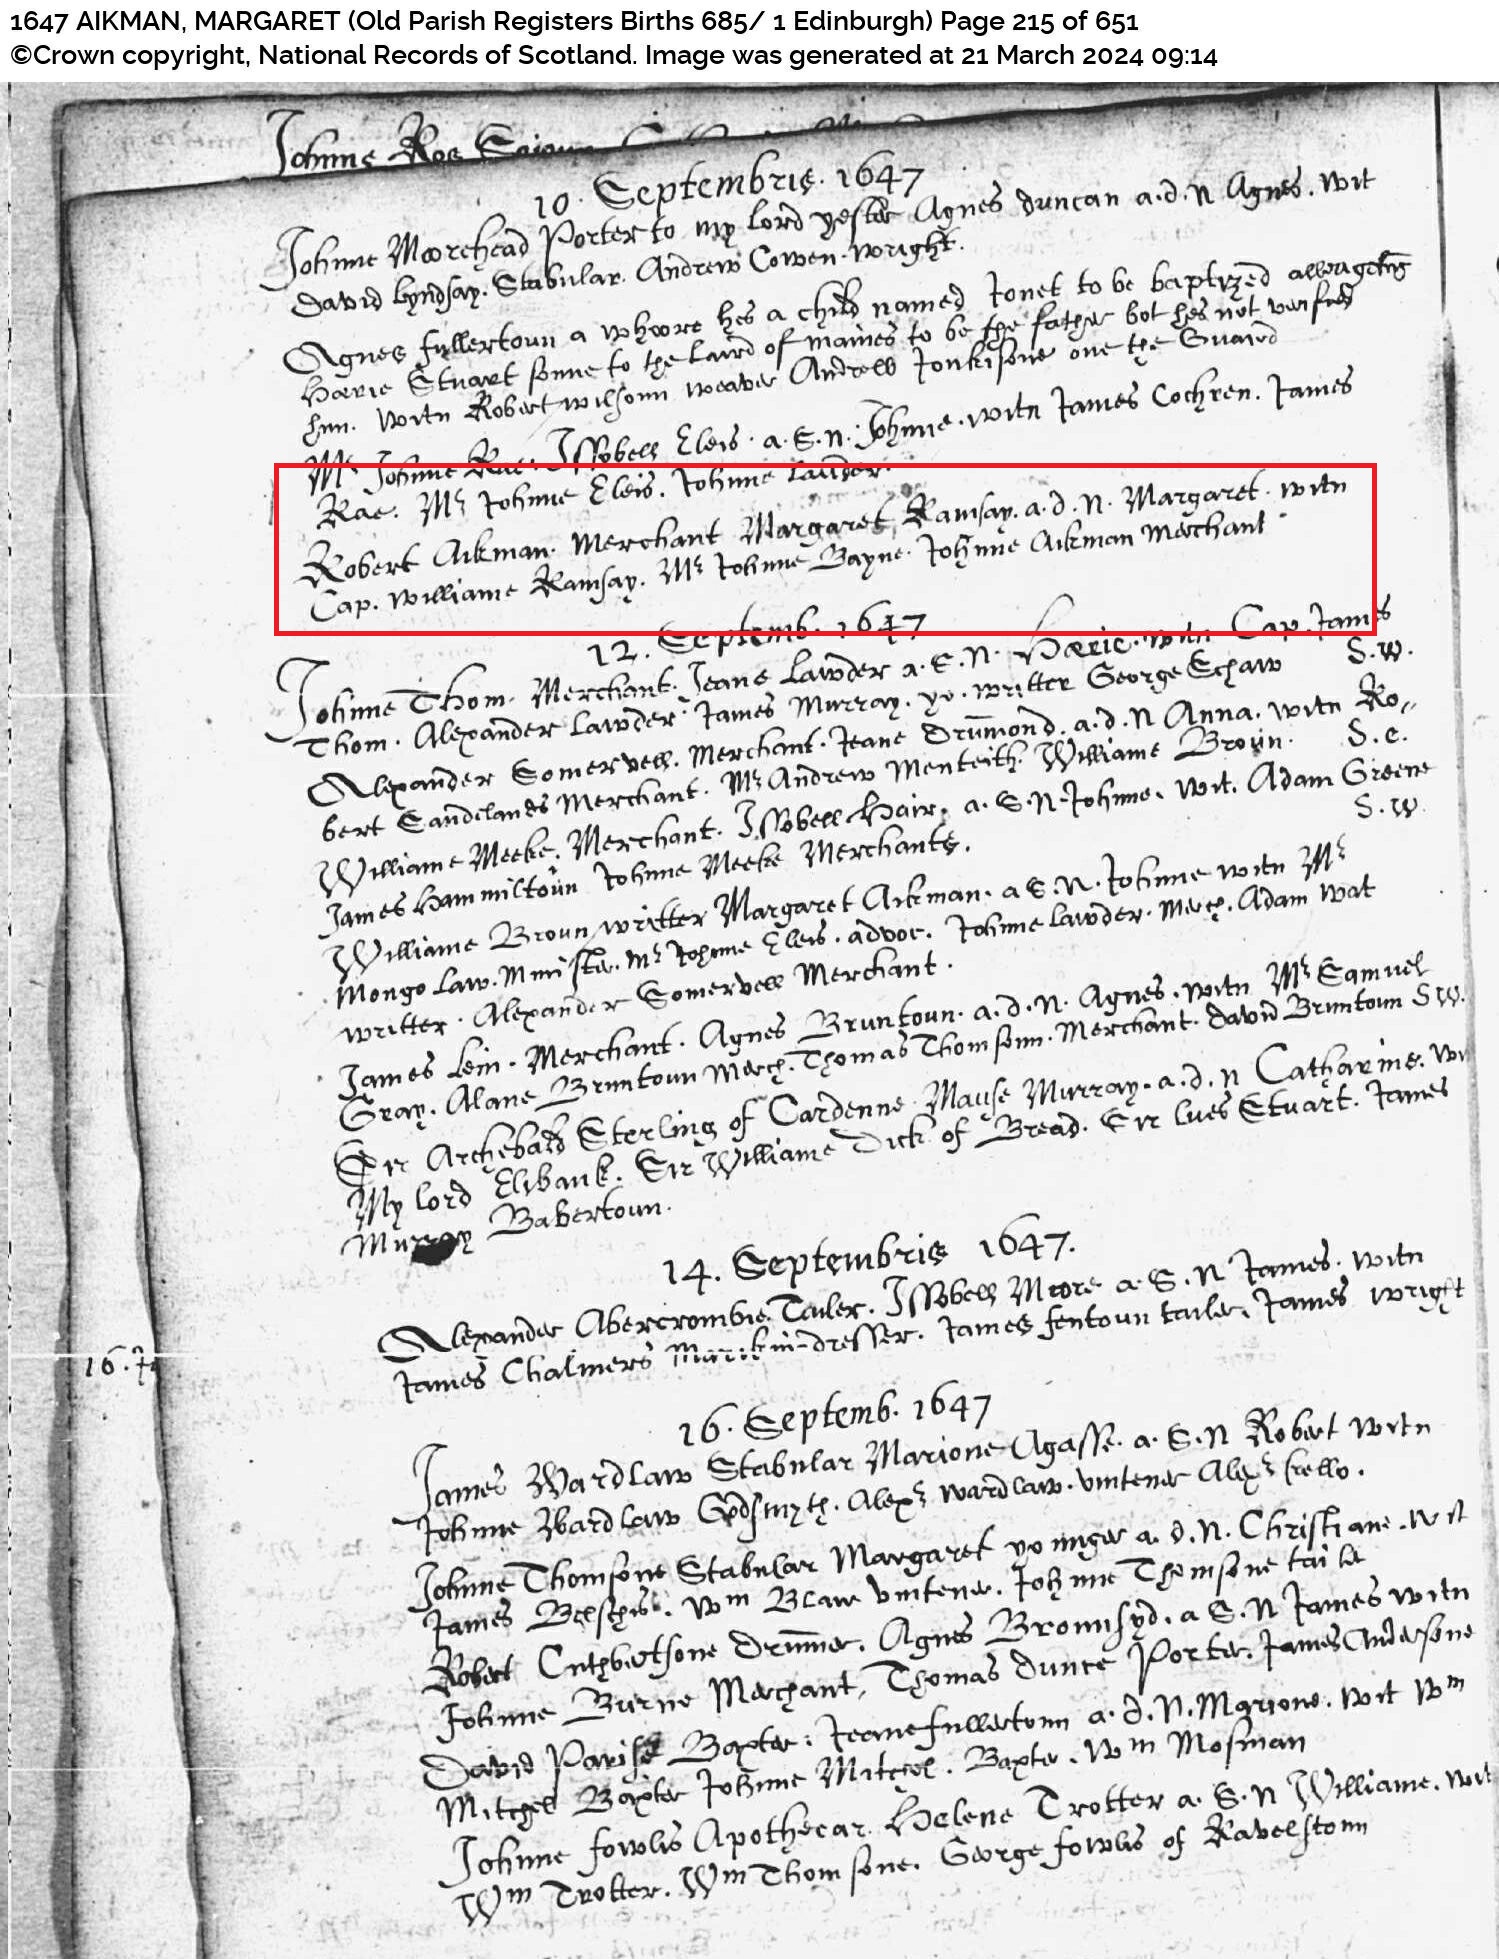 1647 AIKMAN, MARGARET (Old Parish Registers Births 685/ 1 Edinburgh) Page 215 of 651
©Crown copyright, National Records of Scotland. Image was generated at 21 March 2024 09:14
Johnne Roe
10. Septembris. 1647
Johnne Moorehead Porter to my lord yester Agnes duncan a.d.N Agnes. wit
David lyndsay. Stabular. Andrew Cowen. wright.
Agnes fullertoun a whoore hes a child named Jonet to be baptyzed
Harie Stuart sonne to the Laird of maines to be the father bot hes not verified
him. witn Robert wilsonn weaver Andrew Jonkisone one the Guaird
Mr Johnne Rae. Issobell Eleis. a.S.n. Johnne. witn James Cochren. James
Rae. Mr Johnne Eleis. Johnne Lauder.
Robert Aikman. Merchant Margaret Ramsay. a.d.N. Margaret. witn
Cap. Williame Ramsay. Mr Johnne Bayne. Johnne Aikman Merchant
12. Septemb. 1647
Johnne Thom. Merchant. Jeane Lawder a.S.N. Harie. witn Cap. James
Thom. Alexander Lawder. James Murray. yo. writter George Schaw S.W.
Alexander Somervell. Merchant. Jeane Drummond. a.d.N Anna. witn Ro„
bert Sandelands Merchant. Mr Andrew Menteith. Williame Broun. S.e.
Williame Meeke. Merchant. Issobell Hair. a.S.N. Johnne. wit. Adam Greene
James Hammiltoun Johnne Meeke Merchants. S.W
Williame Broun writter Margaret Aikman. a S.N. Johnne witn Mr
Mongo Law. Minister. Mr Johnne Eleis. advoc. Johnne Lawder. Merch. Adam Wat
writter. Alexander Somervell Merchant.
James Lein. Merchant. Agnes Bruntoun. a.d.N. Agnes. witn Mr Samuel
Gray. Alane Bruntoun Merch. Thomas Thomsonn. Merchant. David Bruntoun S W.
Sir Archebald Sterling of Cardenne Mause Murray. a.d.n Catharine. wi
My lord Elibank. Sir Williame Dick of Bread. Sir lues Stuart. James
Murray Babertoun.
14. Septembris 1647.
Alexander Abercrombie. Tailer. Issobell Moore a.S.N James. witn
James Chalmers dresser. James fentoun tailer. James wright
16. Septemb. 1647
James Wardlaw Stabular Marione Agasse. a.S.N Robert witn
Johnne Wardlaw Goldsmyth. Alexr wardlaw. vintener Alexr
Johnne Thomsone Stabular Margaret younger a.d.N. Christiane. wit
James. Wm Blair vintener. Johnne Thomsone tailer
Robert Cuthbertsone Drummer. Agnes Brounsyd. a S.N James witn
Johnne Burne Merchant, Thomas Dunce Porter. James Andersone
David Parise Baxter. Jeane fullertoun a.d.N. Marione. wit Wm
Mitchel Baxter Johnne Mitchel. Baxter. Wm Mosman
Johnne fowlis Apothecar. Helene Trotter a.S.N Williame. wit
Wm Trotter. Wm Thomsone. George fowlis of Ravelstoun